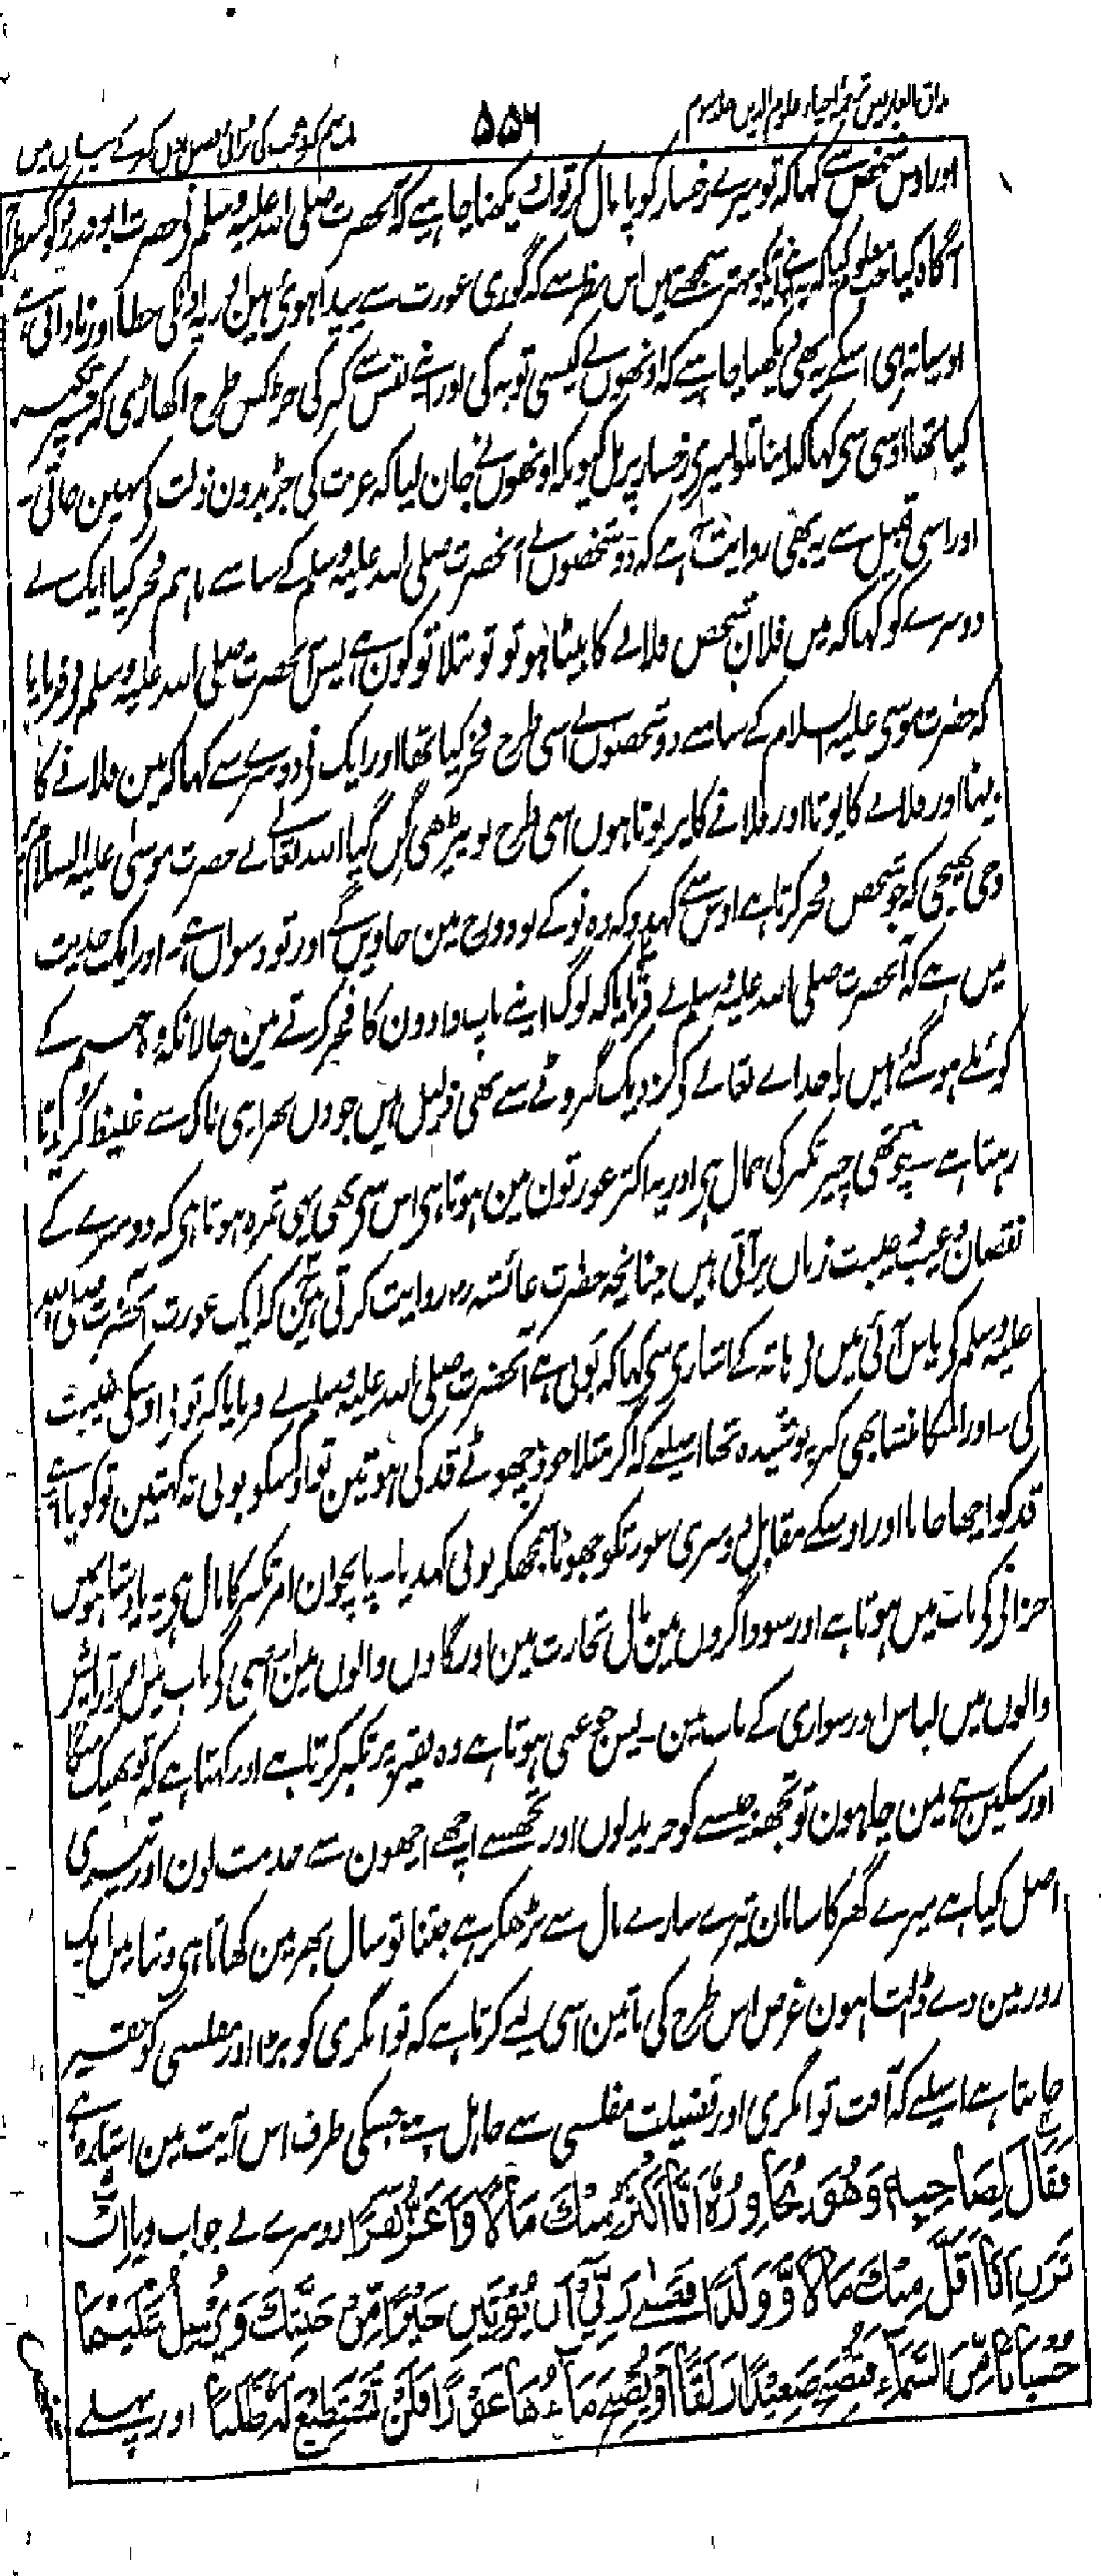 مذاق العارفین ترجمہ احیاء علوم الدین جلد سوم
۵۵۶
اور اوس شخص سے کہا کہ تو میرے رخسار کو پامال کر تو اب دیکھنا چاہیے کہ آنحضرت صلی اللہ علیہ وسلم نے حضرت ابوذر کو کسطرح
آگاہ کیا جب معلوم کیا کہ یہ اپنے آپکو بہتر سمجھتے ہیں اس نظر سے کہ گوری عورت سے پیدا ہوئے ہیں اور یہ اونکی خطا اور نادانی ہے
اور ساتہ ہی اسکے یہ بھی دیکھنا چاہیے کہ اونھوں نے کیسی توبہ کی اور اپنے نفس سے کبر کی جڑ کس طرح اکھاڑی کہ جسپر تکبر
کیا تھا اوسی سے کہا کہ اپنا تلوا میرے رخسار پر مل کیونکہ اونھوں نے جان لیا کہ عزت کی جڑ بدون ذلت کے نہین جاتی۔
اور اسی قبیل سے یہ بھی روایت ہے کہ دو شخصوں نے آنحضرت صلی اللہ علیہ وسلم کے سامنے باہم فخر کیا ایک نے
دوسرے کو کہا کہ میں فلان شخص فلانے کا بیٹا ہوں تو تو بتلا تو کون ہے پس آنحضرت صلی اللہ علیہ وسلم نے فرمایا
کہ حضرت موسی علیہ السلام کے سامنے دو شخصوں نے اسی طرح فخر کیا تھا اور ایک نے دوسرے سے کہا کہ مین فلانے کا
بیٹا اور فلانے کا پوتا اور فلانے کا پرپوتا ہوں اسی طرح نو پیڑھی گن گیا اللہ تعالے نے حضرت موسیٰ علیہ السلام پر
وحی بھیجی کہ جو شخص فخر کرتا ہے اوس سے کہدو کہ وہ نو کے نو دوزخ مین جاوینگے اور تو دسواں ہے۔ اور ایک حدیث
میں ہے کہ آنحضرت صلی اللہ علیہ وسلم نے فرمایا کہ لوگ اپنے باپ دادون کا فخر کرتے ہین حالانکہ وہ جہنم کے
کوئلے ہو گئے ہیں یا خداے تعالے کے نزدیک گبروٹے سے بھی ذلیل ہیں جو دن بھر اپنی ناک سے غلیظ گرد کرتا
رہتا ہے۔ چوتھی چیز تکبر کی جمال ہے اور یہ اکثر عورتون مین ہوتا ہی اس سے بھی یہی ثمرہ ہوتا ہے کہ دوسرے کے
نقصان و عیب و غیبت زبان پر آتی ہیں چنانچہ حضرت عائشہ رض روایت کرتی ہین کہ ایک عورت آنحضرت صلی اللہ
علیہ وسلم کے پاس آئی میں نے ہاتہ کے اشارے سے کہا کہ بونی ہے آنحضرت صلی اللہ علیہ وسلم نے فرمایا کہ تو نے اوسکی غیبت
کی۔ اور اسکا منشا بھی کبر پوشیدہ تھا اسلیے کہ اگر مثلا خود چھوٹے قد کی ہوتین تو اوسکو بونی نہ کہتین تو گویا اپنے
قد کو اچھا جانا اور اوسکے مقابل دوسری عورتکو چھوٹا سمجھکر بونی کہدیا۔ پانچوان امر تکبر کا مال ہی یہ بادشاہوں میں
خزانے کے باب میں ہوتا ہے اور سوداگروں مین مال تجارت مین اور گاوں والوں مین اراضی کے باب میں اور آرایش
والوں میں لباس اور سواری کے باب مین۔ پس جو غنی ہوتا ہے وہ فقیر پر تکبر کرتا ہے اور کہتا ہے کہ تو بھیک منگا
اور مسکین ہے مین چاہون تو تجھ جیسے کو خرید لوں اور تجھسے اچھے اچھون سے خدمت لون اور تیری
اصل کیا ہے میرے گھر کا سامان تیرے سارے مال سے بڑھکر ہے جتنا تو سال بھر مین کھاتا ہی وتنا میں ایک
روز مین دے ڈالتا ہون غرض اس طرح کی باتین اسی لیے کرتا ہے کہ توانگری کو بڑا اور مفلسی کو حقیر
جانتا ہے اسلیے کہ آفت توانگری اور فضیلت مفلسی سے جاہل ہے جسکی طرف اس آیت مین اشارہ ہے
فَقَالَ لِصَاحِبِهٖ وَهُوَ يُحَاوِرُهٗ اَنَا اَكْثَرُ مِنْكَ مَالًا وَّاَعَزُّ نَفَرًا دوسرے نے جواب دیا اِنْ
تَرَنِ اَنَا اَقَلَّ مِنْكَ مَالًا وَّوَلَدًا فَعَسٰى رَبِّيْ اَنْ يُّؤْتِيَنِ خَيْرًا مِّنْ جَنَّتِكَ وَيُرْسِلَ عَلَيْهَا
حُسْبَانًا مِّنَ السَّمَآءِ فَتُصْبِحَ صَعِيْدًا زَلَقًا اَوْ يُصْبِحَ مَآؤُهَا غَوْرًا فَلَنْ تَسْتَطِيْعَ لَهٗ طَلَبًا اور پہلے